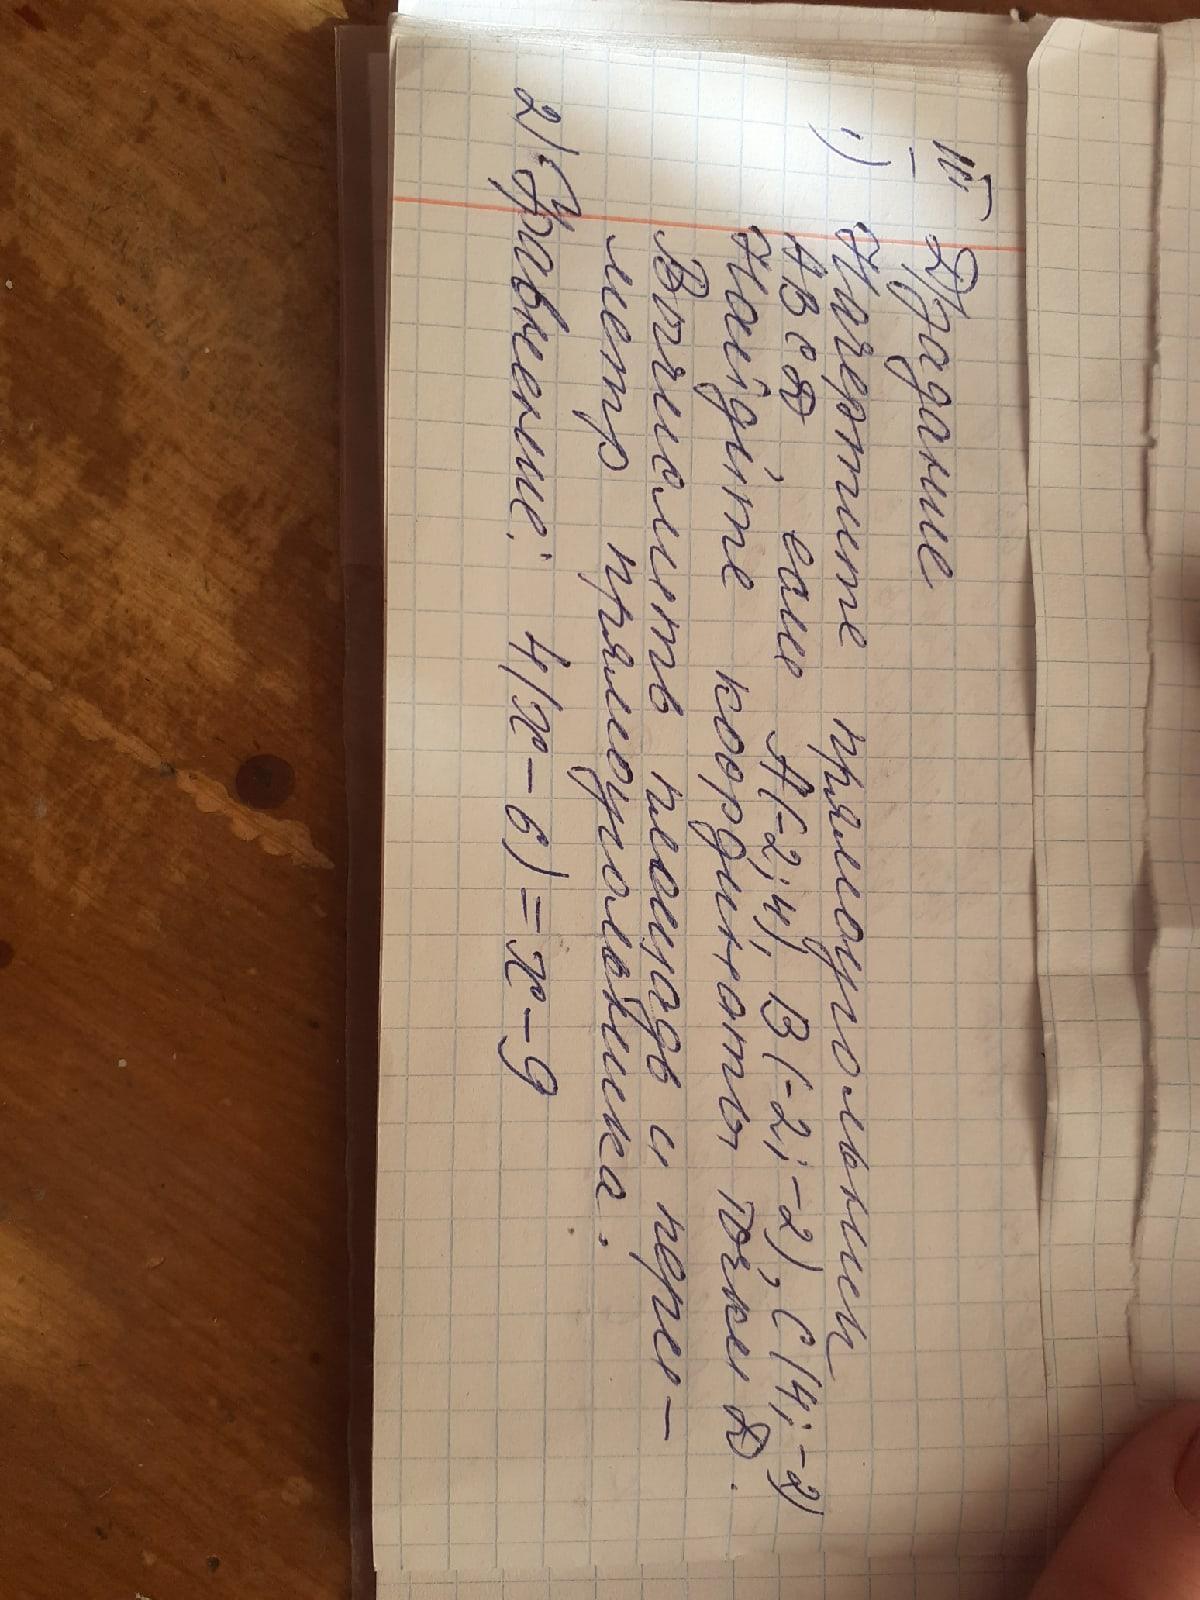 III Д/задание
1) Начертите прямоугольник
АВСД если А(-2;4), В(-2;-2), С(4;-2)
Найдите координаты точки Д.
Вычислить площадь и пери-
метр прямоугольника.
2) Уравнение: 4(x-6)=x-9